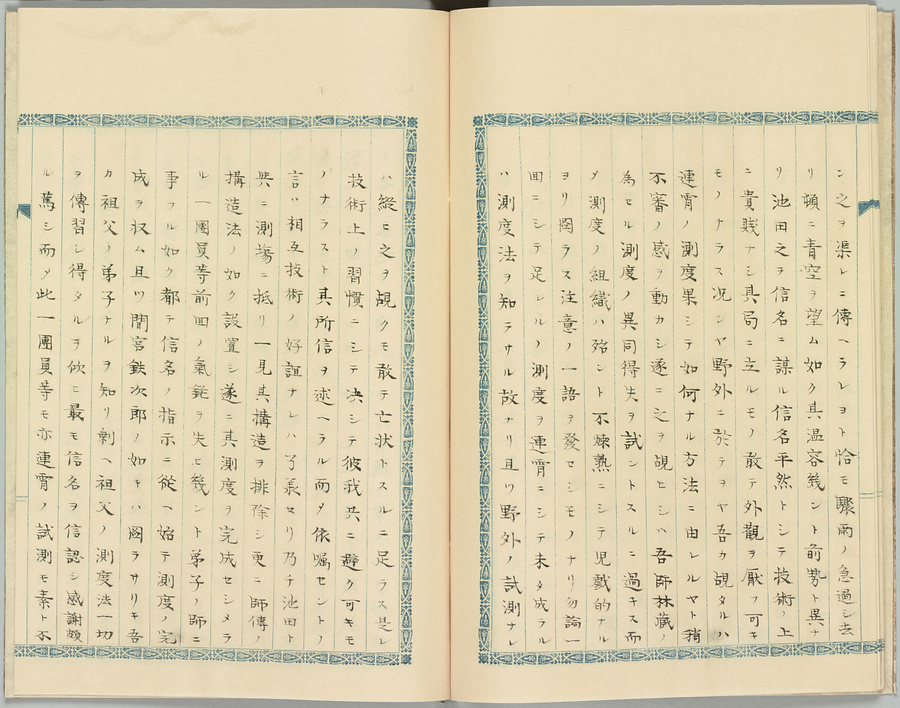 ン之ヲ渠レニ傳ヘラレヨト恰モ驟雨ノ急過シ去
リ頓ニ青空ヲ望ム如ク其温容幾ント前勢ト異ナ
リ池田之ヲ信名ニ謀ル信名平然トシテ技術ノ上
ニ貴賤ナシ其局ニ立ルモノ敢テ外觀ヲ厭フ可キ
モノナラス况ンヤ野外ニ於テヲヤ吾カ覘タルハ
連霄ノ測度果シテ如何ナル方法ニ由レルヤト稍
不審ノ感ヲ動カシ遂ニ之ヲ覘ヒシハ吾師林藏ノ
為セル測度ノ異同得失ヲ試ントスルニ過キス而
メ測度ノ組織ハ殆ント不練熟ニシテ児戯的ナル
ヨリ圖ラス注意ノ一語ヲ發セシモノナリ勿論一
回ニシテ足レルノ測度ヲ連霄ニシテ未タ成ラル
ハ測度法ヲ知ラサル故ナリ且ツ野外ノ試測ナレ
ハ縱ヒ之ヲ覘クモ敢テ亡状トスルニ足ラス是レ
技術上ノ習慣ニシテ决シテ彼我共ニ避ク可キモ
ノナラスト其所信ヲ述ヘラル而メ依嘱セントノ
言ハ相互技術ノ好誼ナレハ了承セリ乃テ池田ト
共ニ測塲ニ抵リ一見其構造ヲ排除シ更ニ師傳ノ
構造法ノ如ク設置シ遂ニ其測度ヲ完成セシメラ
ル一團員等前回ノ氣鋭ヲ失ヒ幾ント弟子ノ師ニ
事フル如ク都テ信名ノ指示ニ従ヘ始テ測度ノ完
成ヲ収ム且ツ間宮鉄次郎ノ如キハ圖ラサリキ吾
カ祖父ノ弟子ナルヲ知リ剰ヘ祖父ノ測度法一切
ヲ傳習シ得タルヲ欣ヒ最モ信名ヲ信認シ感謝頗
ル篤シ而メ此一團員等モ亦連霄ノ試測モ素ト不